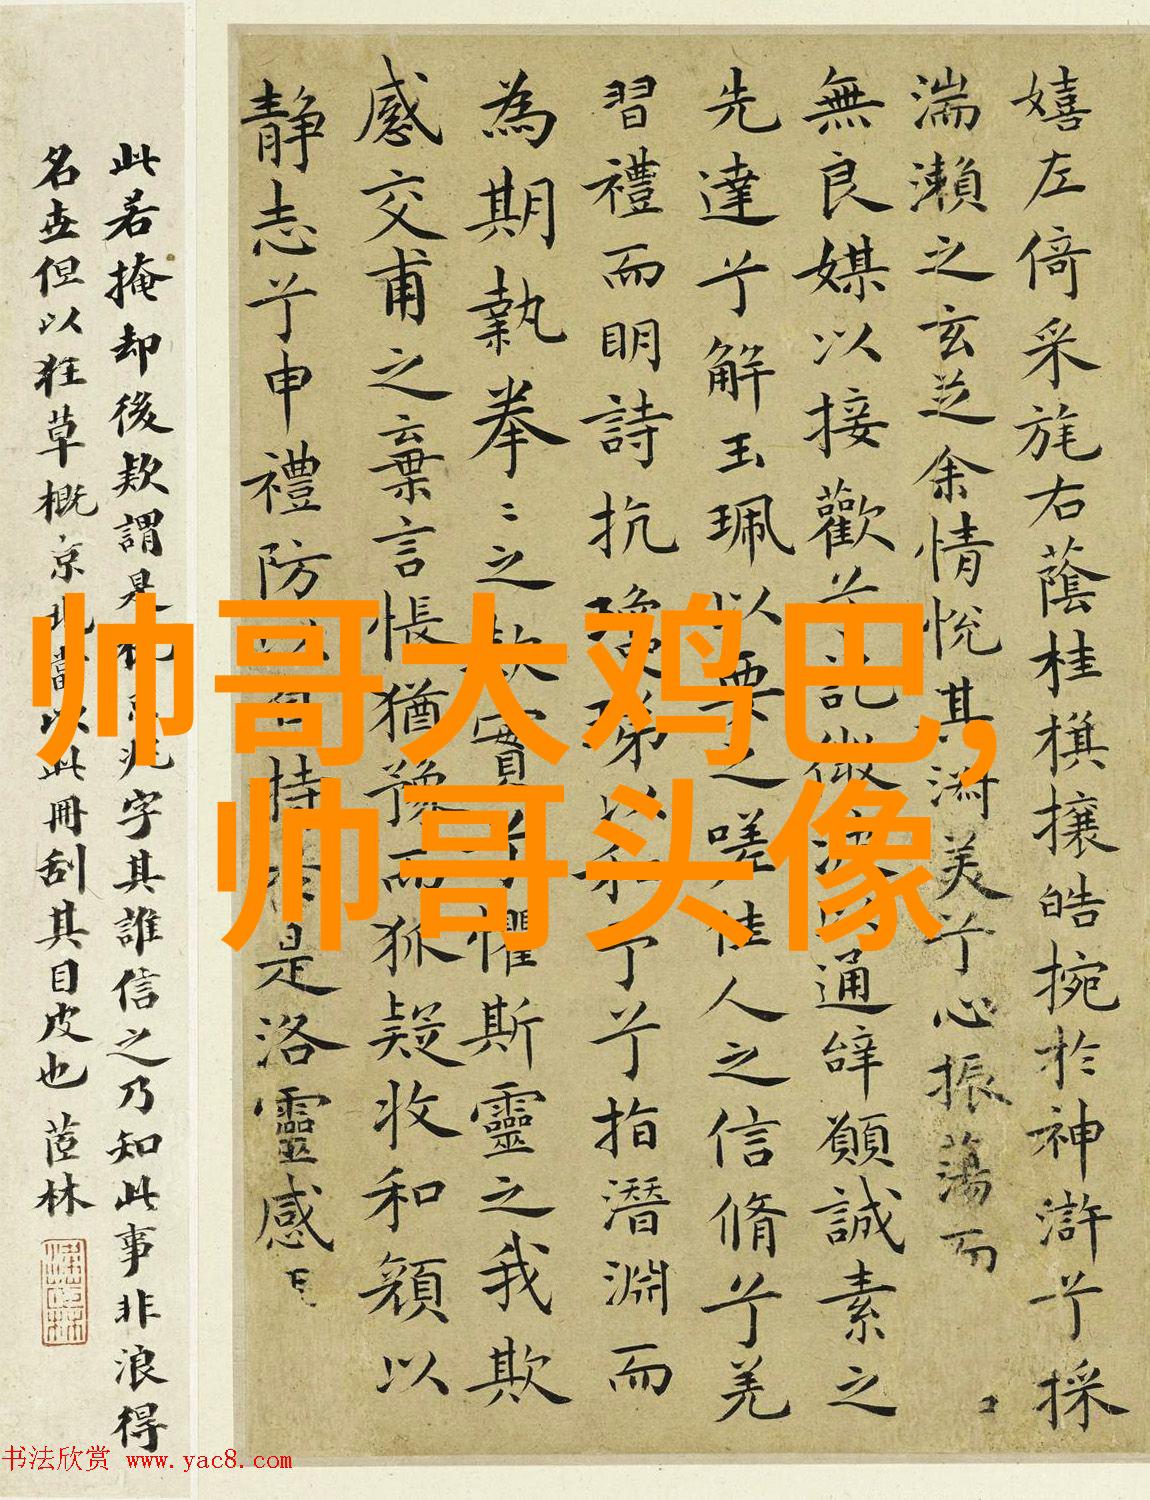 嬉左倚采旄右蔭桂樸攘皓捥於神滸兮採
湍瀨之玄芝余情悅其淑美兮心振蕩而
無良媒以接歡兮託微波以通辭願誠素之
先達兮解玉珮以要之嗟佳人之信脩兮羌
習禮而明詩抗瓊珶以和予兮指潛淵而
為期執拳〻之款實兮懼斯靈之我欺
感交甫之棄言悵猶豫而狐疑收和顏以
靜志兮申禮防以自持於是洛靈感
此若掩却後款謂是字其誰信之乃知此事非浪得
名世但以狂草概京此當以此冊刮其目皮也 茝林
帅哥大鸡巴,
帅哥头像
书法欣赏 www.yac8.com